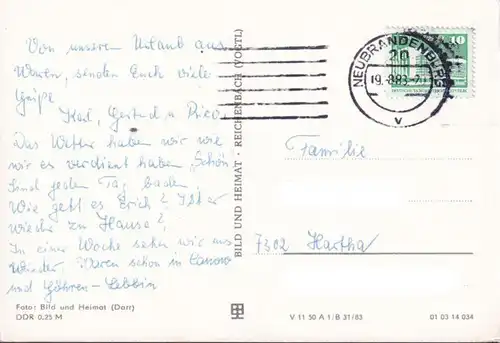 Von unserem Urlaub aus
Waren, senden Euch viele
Grüße
Karl, Gertrud u
Das Wetter haben wir wie
wir es verdient haben, Schön
sind jeden Tag baden.
Wie geht es Erich? Ist er
wieder zu Hause?
In einer Woche sehen wir uns
wieder. Waren schon in
und Göhren-Lebbin
Foto: Bild und Heimat (Darr)
DDR 0,25 M
BILD UND HEIMAT · REICHENBACH (VOGTL)
NEUBRANDENBURG
20
19.-8.83-
v
10
Familie
7302 Hartha
V 11 50 A 1/B 31/83
01 03 14 034